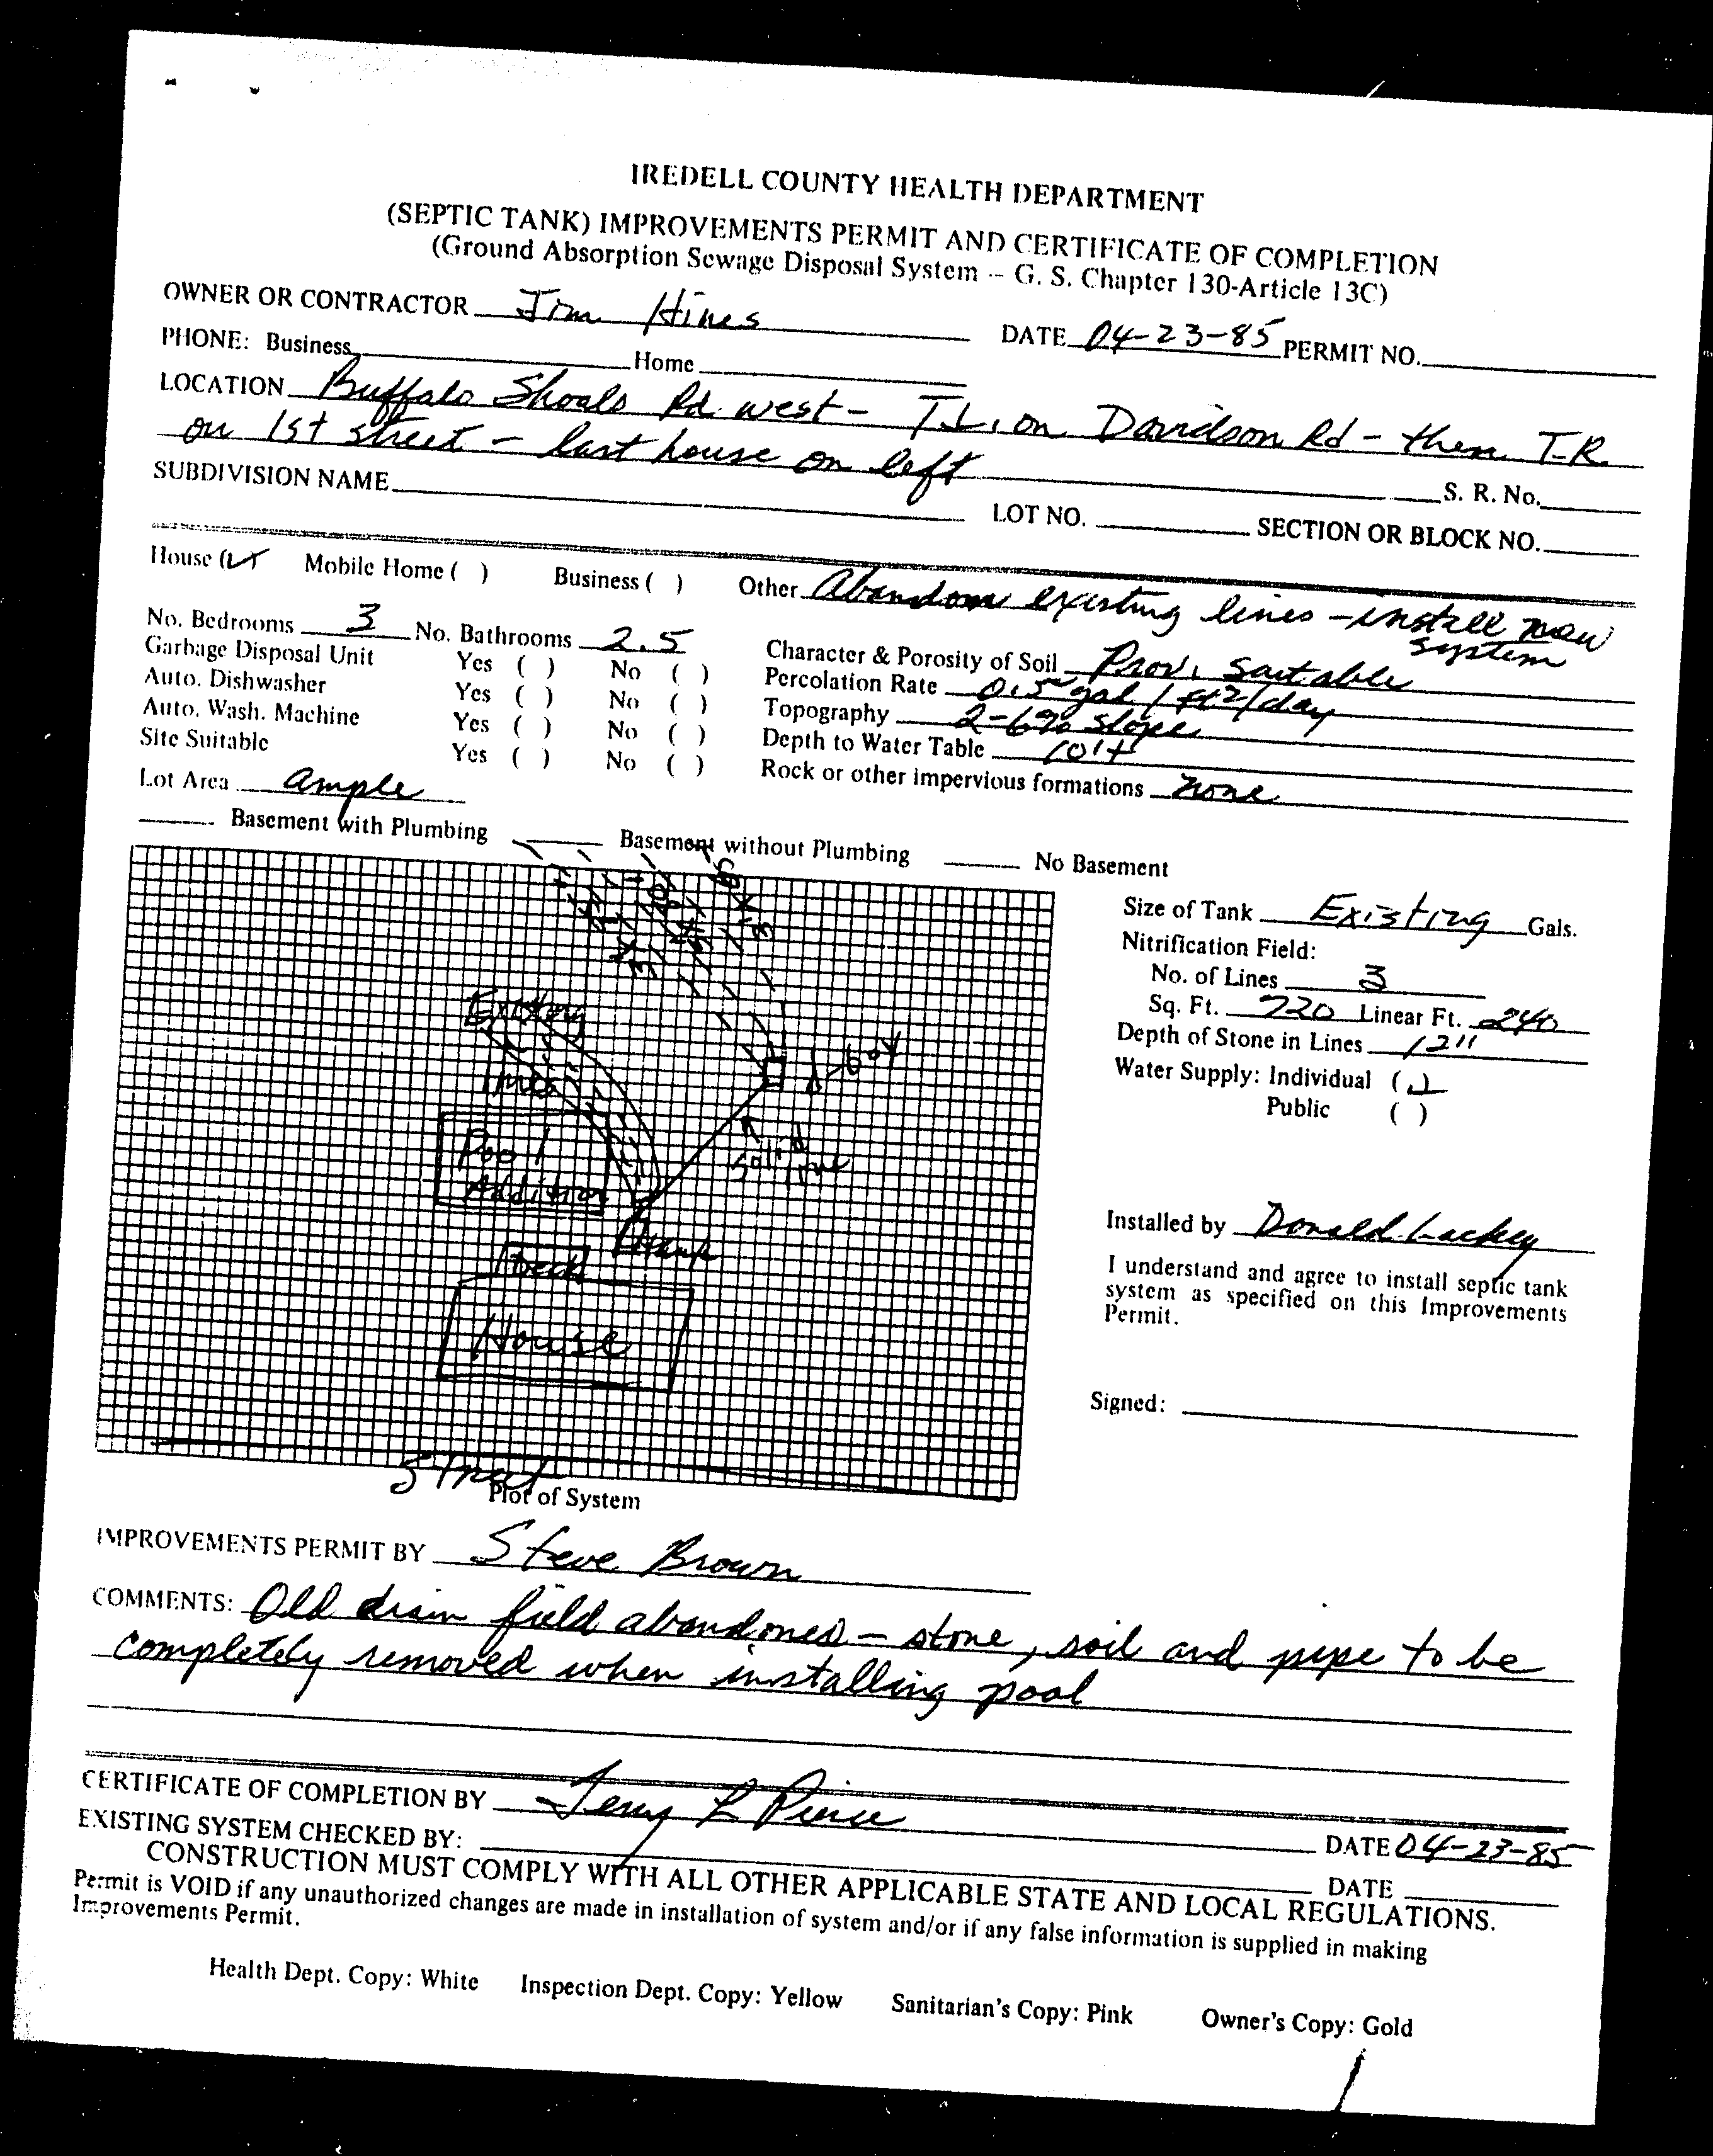 IREDELL COUNTY HEALTH DEPARTMENT
(SEPTIC TANK) IMPROVEMENTS PERMIT AND CERTIFICATE OF COMPLETION
(Ground Absorption Sewage Disposal System -- G. S. Chapter 130-Article 13C)
OWNER OR CONTRACTOR Jim Hines DATE 04-23-85 PERMIT NO.
PHONE: Business Home
LOCATION Buffalo Shoals Rd west - T.L. on Davidson Rd - then T.R.
on 1st street - last house on left S. R. No.
SUBDIVISION NAME LOT NO. SECTION OR BLOCK NO.
House (✓) Mobile Home ( ) Business ( ) Other Abandon existing lines - install new
system
No. Bedrooms 3 No. Bathrooms 2.5 Character & Porosity of Soil Prov. Suitable
Garbage Disposal Unit Yes ( ) No ( ) Percolation Rate 0.5 gal / ft2/day
Auto. Dishwasher Yes ( ) No ( ) Topography 2-6% slope
Auto. Wash. Machine Yes ( ) No ( ) Depth to Water Table 10'+
Site Suitable Yes ( ) No ( ) Rock or other impervious formations None
Lot Area Ample
Basement with Plumbing Basement without Plumbing No Basement
Size of Tank Existing Gals.
Nitrification Field:
No. of Lines 3
Sq. Ft. 720 Linear Ft. 240
Depth of Stone in Lines 12"
Water Supply: Individual (✓)
Public ( )
Existing
lines
Box
Pool
Addition
Solid
line
Tank
Deck
House
Street
Plot of System
Installed by Donald Lackey
I understand and agree to install septic tank
system as specified on this Improvements
Permit.
Signed:
IMPROVEMENTS PERMIT BY Steve Brown
COMMENTS: Old drain field abandoned - stone, soil and pipe to be
completely removed when installing pool
CERTIFICATE OF COMPLETION BY Terry L Pierce DATE 04-23-85
EXISTING SYSTEM CHECKED BY: DATE
CONSTRUCTION MUST COMPLY WITH ALL OTHER APPLICABLE STATE AND LOCAL REGULATIONS.
Permit is VOID if any unauthorized changes are made in installation of system and/or if any false information is supplied in making
Improvements Permit.
Health Dept. Copy: White Inspection Dept. Copy: Yellow Sanitarian's Copy: Pink Owner's Copy: Gold